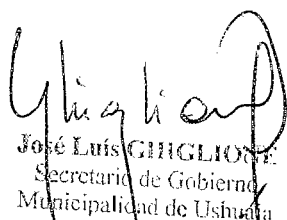 José Luís GHIGLIONE
Secretario de Gobierno
Municipalidad de Ushuaia